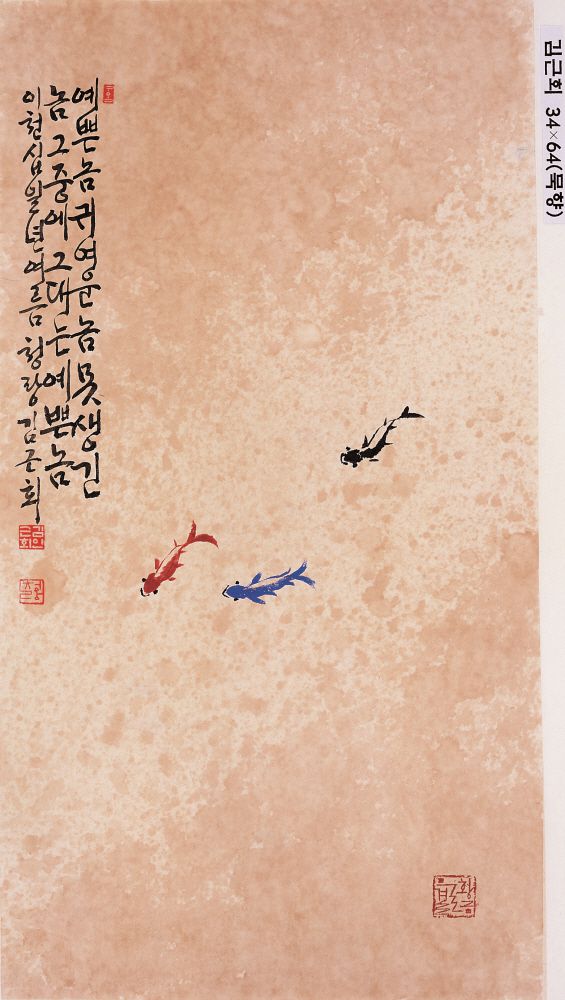 예쁜놈 귀여운놈 못생긴
놈 그중에 그대는 예쁜놈
이천십일년 여름 청랑 김근회
김근회 34×64(묵향)